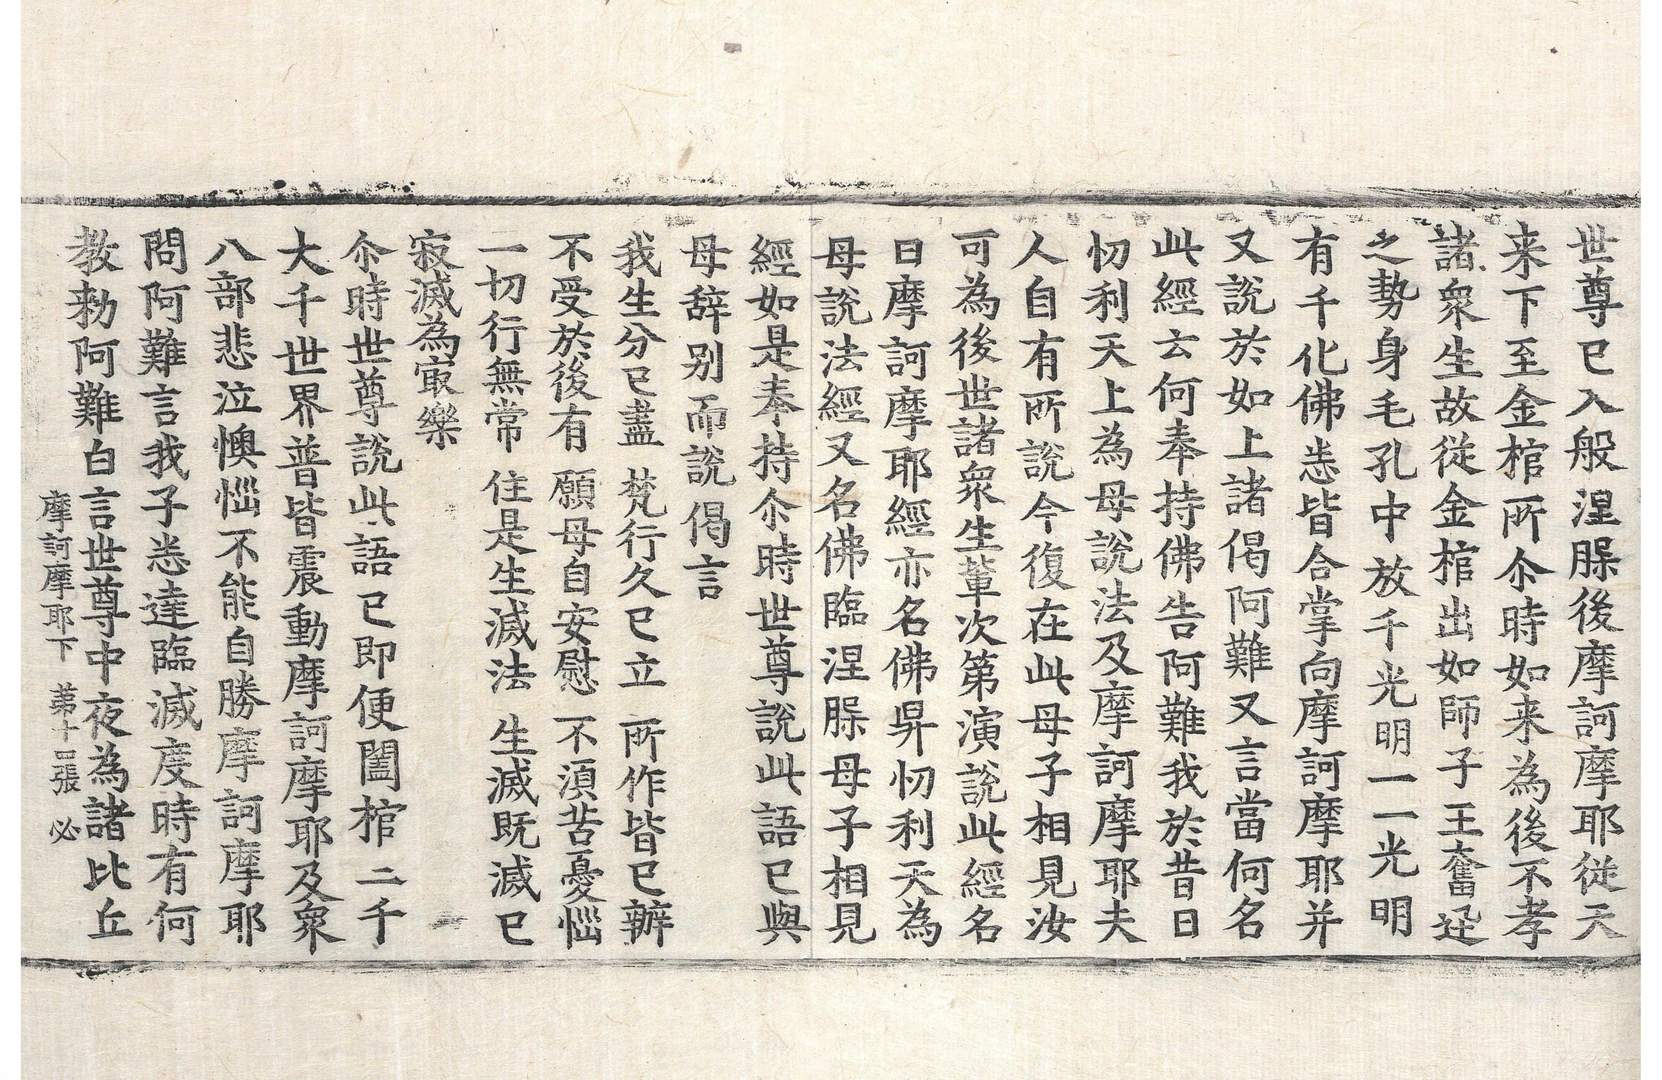 世尊已入般涅槃後摩訶摩耶從天
来下至金棺所尒時如来為後不孝
諸衆生故從金棺出如師子王奮迅
之勢身毛孔中放千光明一一光明
有千化佛悉皆合掌向摩訶摩耶并
又說於如上諸偈阿難又言當何名
此經云何奉持佛告阿難我於昔日
忉利天上為母說法及摩訶摩耶夫
人自有所說今復在此母子相見汝
可為後世諸衆生軰次第演說此經名
曰摩訶摩耶經亦名佛昇忉利天為
母說法經又名佛臨涅槃母子相見
經如是奉持尒時世尊說此語已與
母辞别而說偈言
我生分已盡　梵行久已立　所作皆已辦
不受於後有　願母自安慰　不湏苦憂惱
一切行無常　住是生滅法　生滅既滅已
寂滅為㝡樂
尒時世尊說此語已即便闔棺二千
大千世界普皆震動摩訶摩耶及衆
八部悲泣懊惱不能自勝摩訶摩耶
問阿難言我子悉達臨滅度時有何
教勑阿難白言世尊中夜為諸比丘
摩訶摩耶下　第十四張　必